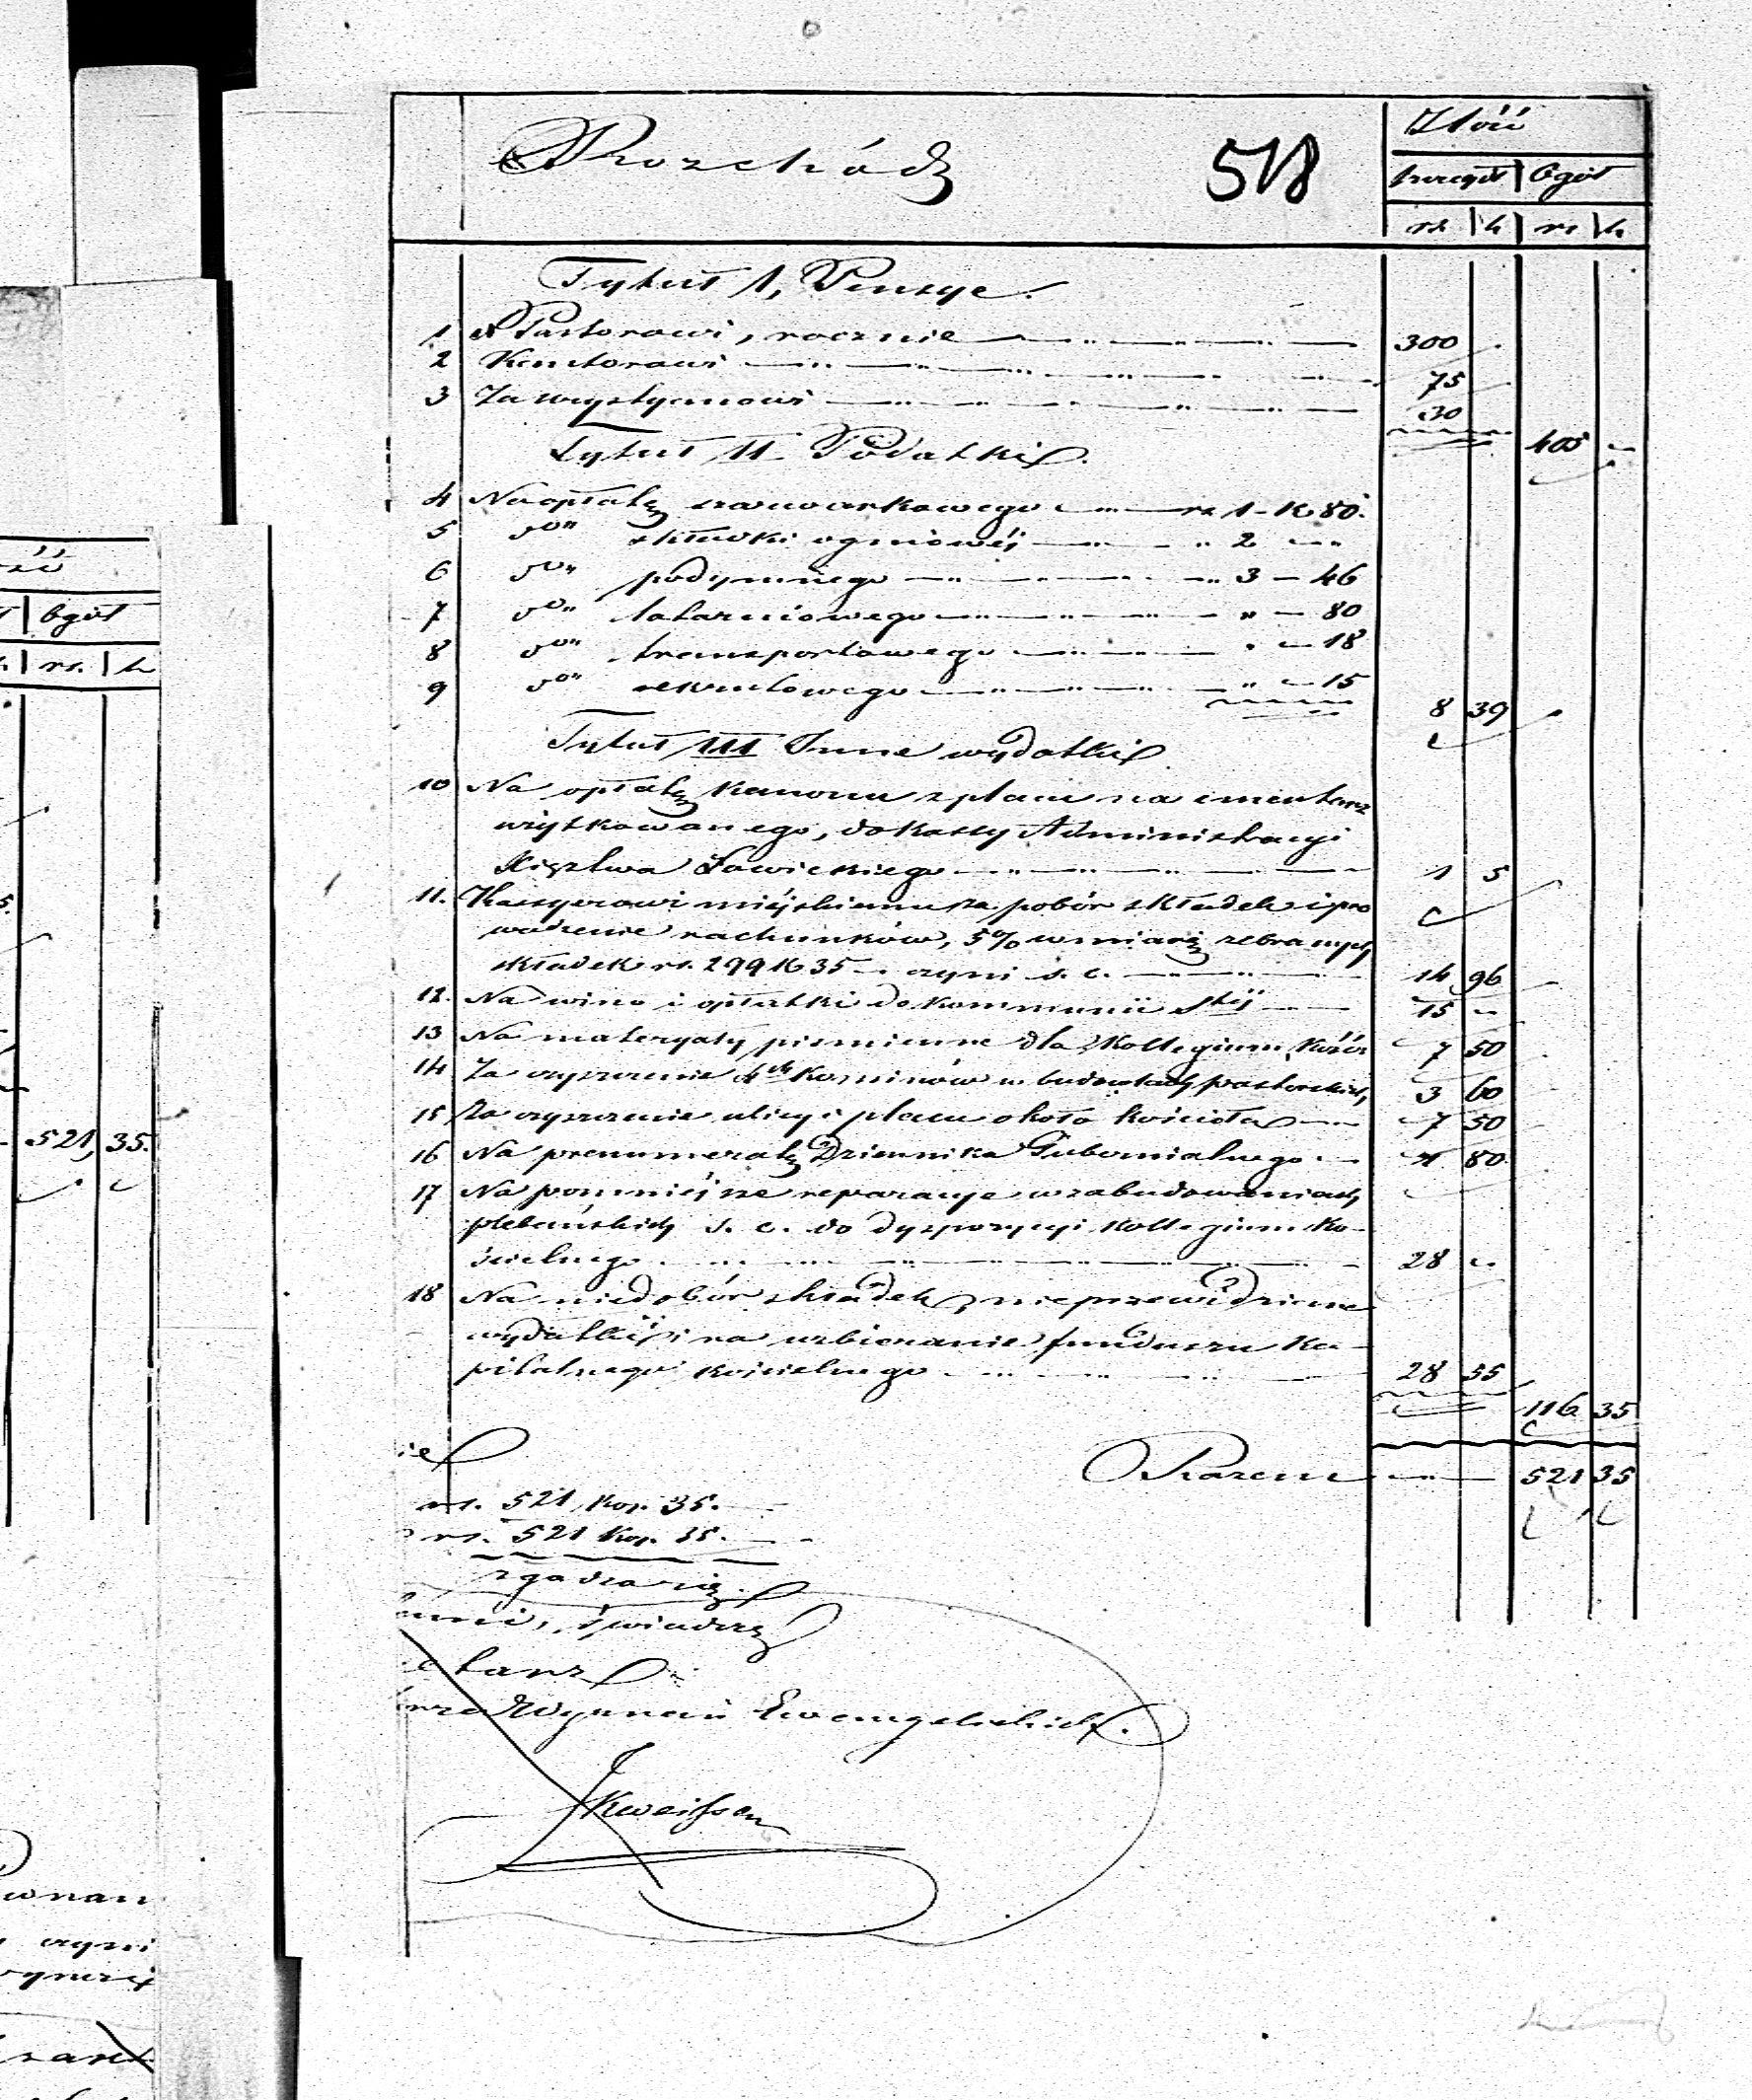 Rozchód
518
Ilość
szczegół ogół
rs k rs k
Tytuł I, Pensye.
1 Pastorowi, rocznie 300
2 Kantorowi 75
3 Zakrystyanowi 30
405 „
Tytuł II Podatki
4 Na opłatę szarwarkowego rs 1 - k 80.
5 do „ składki ogniowéj „ 2 „
6 do „ podymnego „ 3 - 46
7 do „ latarniowego „ - 80
8 do „ transportowego „ - 18
9 do „ rekrutowego „ - 15
8 39
Tytuł III Inne wydatki
10 Na opłatę kanonu z placu na cmentarz
użytkowanego, do kassy Administracyi
Księztwa Łowickiego 1 5
11. Kassyerowi miéjskiemu za pobór składek i pro
wadzenie rachunków, 5% w miarę zebranych
składek rs. 299 k 35 czyni s. c. 14 96
12. Na wino i opłatki do kommunii Stéj 15 „
13 Na materyały piśmienne dla Kollegium Kośc: 7 50
14 Za czyszczenie 4ch kominów w budowlach pastorskich, 3 60
15 Za czyszczenie ulicy i placu około kościoła 7 50
16 Na prenumeratę Dziennika Gubernialnego 1 80
17 Na pomniéjsze reparacye w zabudowaniach
plebańskich s. c. do dyspozycyi Kollegium Ko-
ścielnego 28 „
18 Na niedobór składek, nieprzewidziane
wydatki i na uzbieranie funduszu ka-
pitalnego kościelnego 28 55
116 35
Razem 521 35
rs. 521 kop. 35.
rs. 521 kop. 35.
zgadza się.
świadczę
Ewangelickich.
ogół
rs. k
521, 35.
czyni